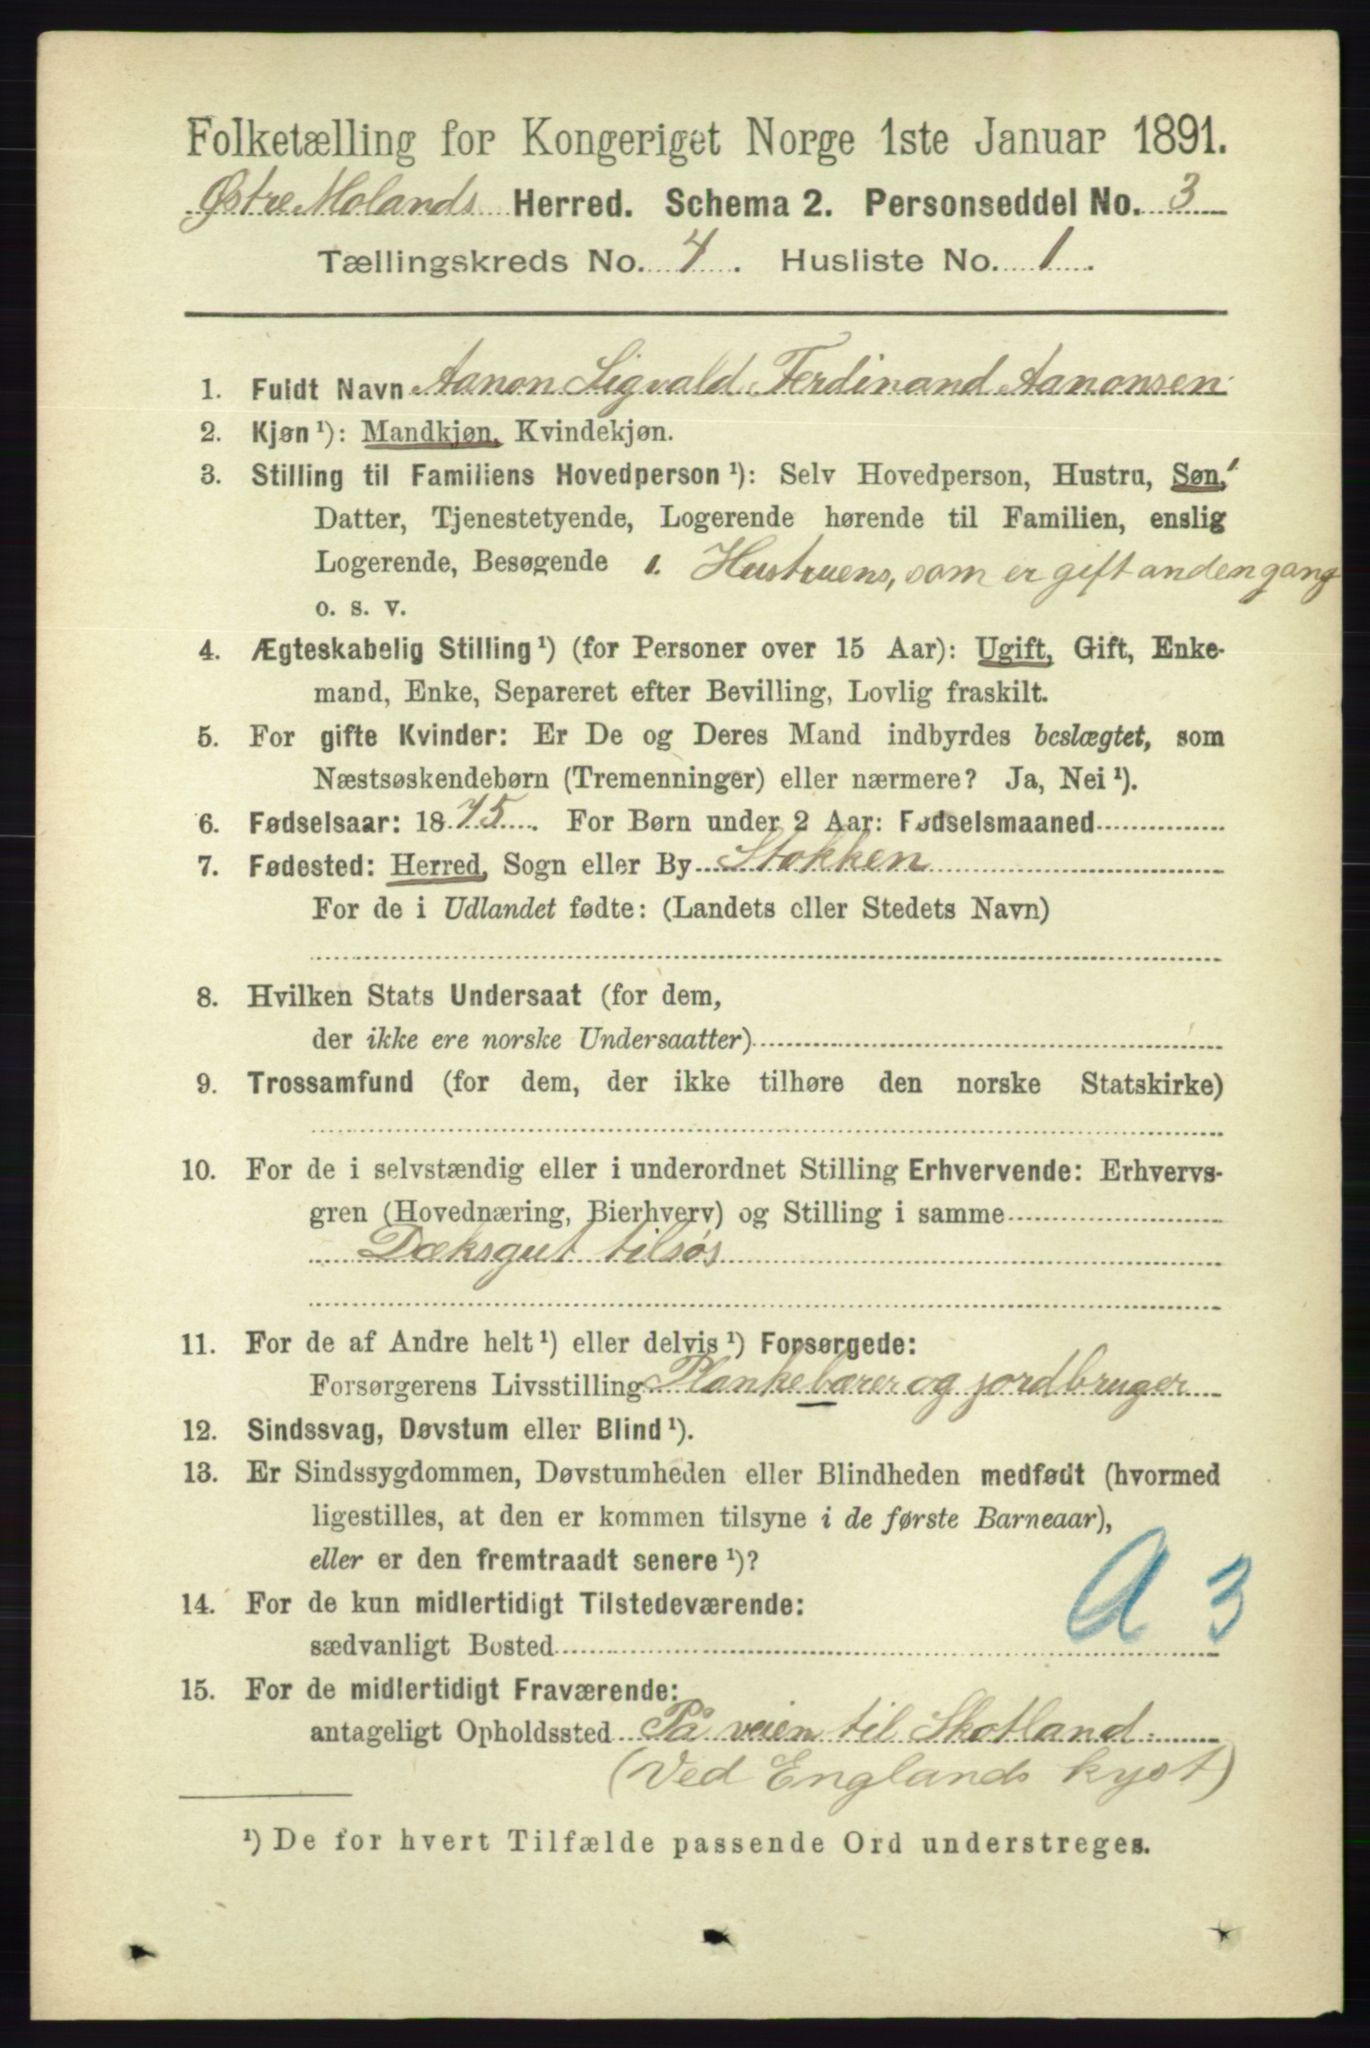 Folketælling for Kongeriget Norge 1ste Januar 1891.
Østre Molands Herred. Schema 2. Personseddel No. 3
Tællingskreds No. 4. Husliste No. 1.
1. Fuldt Navn Aanon Sigvald Ferdinand Aanonsen
2. Kjøn ¹): Mandkjøn, Kvindekjøn.
3. Stilling til Familiens Hovedperson ¹): Selv Hovedperson, Hustru, Søn, ¹
Datter, Tjenestetyende, Logerende hørende til Familien, enslig
Logerende, Besøgende 1. Hustruens, som er gift anden gang
o. s. v.
4. Ægteskabelig Stilling ¹) (for Personer over 15 Aar): Ugift, Gift, Enke-
mand, Enke, Separeret efter Bevilling, Lovlig fraskilt.
5. For gifte Kvinder: Er De og Deres Mand indbyrdes beslægtet, som
Næstsøskendebørn (Tremenninger) eller nærmere? Ja, Nei ¹).
6. Fødselsaar: 1875. For Børn under 2 Aar: Fødselsmaaned
7. Fødested: Herred, Sogn eller By Stokken
For de i Udlandet fødte: (Landets eller Stedets Navn)
8. Hvilken Stats Undersaat (for dem,
der ikke ere norske Undersaatter)
9. Trossamfund (for dem, der ikke tilhøre den norske Statskirke)
10. For de i selvstændig eller i underordnet Stilling Erhvervende: Erhvervs-
gren (Hovednæring, Bierhverv) og Stilling i samme
Dæksgut tilsøs
11. For de af Andre helt ¹) eller delvis ¹) Forsørgede:
Forsørgerens Livsstilling Plankebærer og jordbruger
12. Sindssvag, Døvstum eller Blind ¹).
13. Er Sindssygdommen, Døvstumheden eller Blindheden medfødt (hvormed
ligestilles, at den er kommen tilsyne i de første Barneaar),
eller er den fremtraadt senere ¹)?
14. For de kun midlertidigt Tilstedeværende:
sædvanligt Bosted
A 3
15. For de midlertidigt Fraværende:
antageligt Opholdssted På veien til Skotland
(Ved Englands kyst)
¹) De for hvert Tilfælde passende Ord understreges.